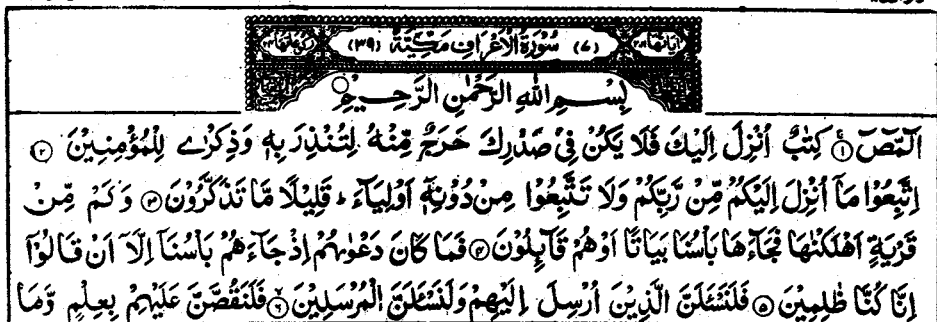 اٰیَاتُهَا ۲۰۶ (۷) سُوْرَةُ الْاَعْرَافِ مَكِّیَّةٌ (۳۹) رُكُوْعَاتُهَا ۲۴
بِسْمِ اللهِ الرَّحْمٰنِ الرَّحِیْمِ
الٓمّٓصٓ ۱ كِتٰبٌ اُنْزِلَ اِلَیْكَ فَلَا یَكُنْ فِیْ صَدْرِكَ حَرَجٌ مِّنْهُ لِتُنْذِرَ بِهٖ وَذِكْرٰے لِلْمُؤْمِنِیْنَ ۲
اِتَّبِعُوْا مَاۤ اُنْزِلَ اِلَیْكُمْ مِّنْ رَّبِّكُمْ وَلَا تَتَّبِعُوْا مِنْ دُوْنِهٖۤ اَوْلِیَآءَ ؕ قَلِیْلًا مَّا تَذَكَّرُوْنَ ۳ وَكَمْ مِّنْ
قَرْیَةٍ اَهْلَكْنٰهَا فَجَآءَهَا بَاْسُنَا بَیَاتًا اَوْ هُمْ قَآئِلُوْنَ ۴ فَمَا كَانَ دَعْوٰىهُمْ اِذْ جَآءَهُمْ بَاْسُنَاۤ اِلَّاۤ اَنْ قَالُوْۤا
اِنَّا كُنَّا ظٰلِمِیْنَ ۵ فَلَنَسْئَلَنَّ الَّذِیْنَ اُرْسِلَ اِلَیْهِمْ وَلَنَسْئَلَنَّ الْمُرْسَلِیْنَ ۶ فَلَنَقُصَّنَّ عَلَیْهِمْ بِعِلْمٍ وَّمَا